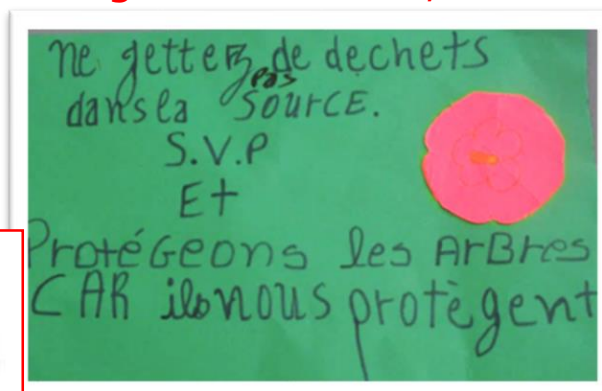 ne getter pas de dechets
dans la source.
S.V.P
Et
Protégeons les ArBres
CAR ils nous protègent